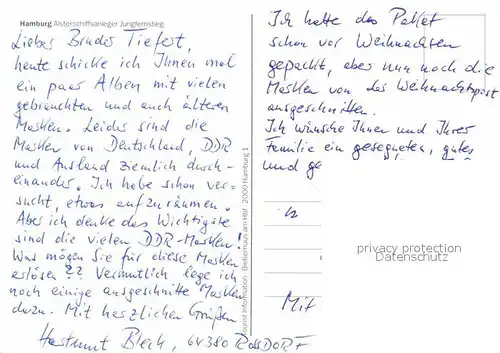 Hamburg Alsterschiffsanleger Jungfernstieg
Lieber Bruder Tiefert,
heute schicke ich Ihnen mal
ein paar Alben mit vielen
gebrauchten und auch älteren
Marken. Leider sind die
Marken von Deutschland, DDR
und Ausland ziemlich durch-
einander. Ich habe schon ver-
sucht, etwas aufzuräumen.
Aber ich denke das Wichtigste
sind die vielen DDR-Marken!
Was mögen Sie für diese Marken
erlösen?? Vermutlich lege ich
noch einige ausgeschnitte Marken
dazu. Mit herzlichen Grüßen
Hartmut Blech, 64380 RoßDORF
Tourist Information · Bieberhaus am Hbf · 2000 Hamburg 1
Ich hatte das Paket
schon vor Weihnachten
gepackt, aber nun noch die
Marken von der Weihnachtspost
ausgeschnitten.
Ich wünsche Ihnen und Ihrer
Familie ein gesegnetes, gutes
und ge
privacy protection
Datenschutz
Mit